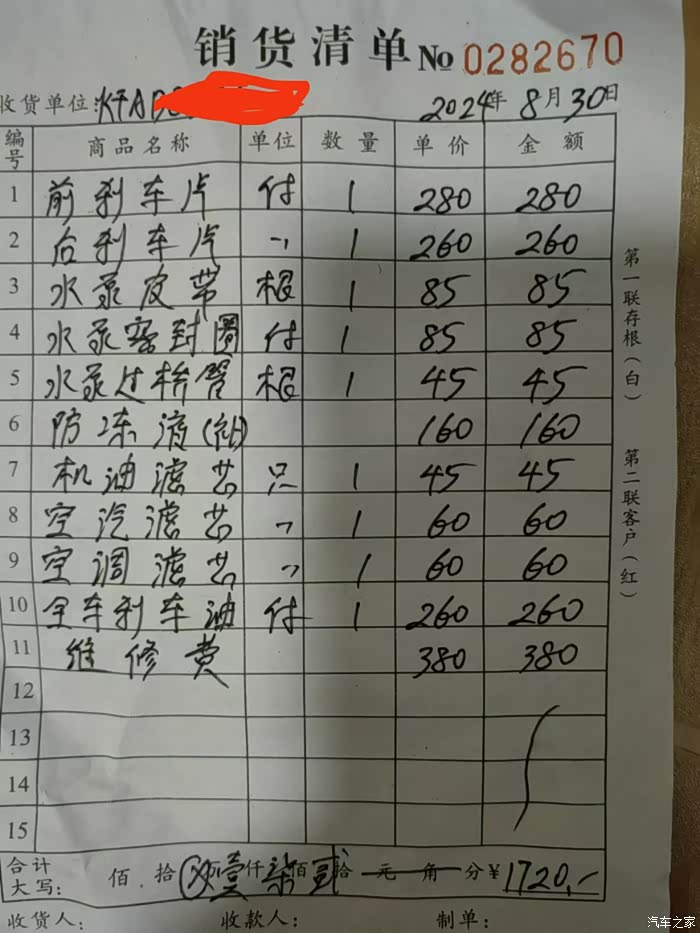 销货清单 №0282670
收货单位: 2024年8月30日
编号 商品名称 单位 数量 单价 金额
1 前刹车片 付 1 280 280
2 后刹车片 〃 1 260 260
3 水泵皮带 根 1 85 85
4 水泵密封圈 付 1 85 85
5 水泵过桥管 根 1 45 45
6 防冻液(补) 160 160
7 机油滤芯 只 1 45 45
8 空汽滤芯 〃 1 60 60
9 空调滤芯 〃 1 60 60
10 全车刹车油 付 1 260 260
11 维修费 380 380
12
13
14
15
合计大写: 佰 拾 万壹仟柒佰贰拾 元 角 分 ¥1720.-
收货人: 收款人: 制单:
第一联存根(白)
第二联客户(红)
汽车之家